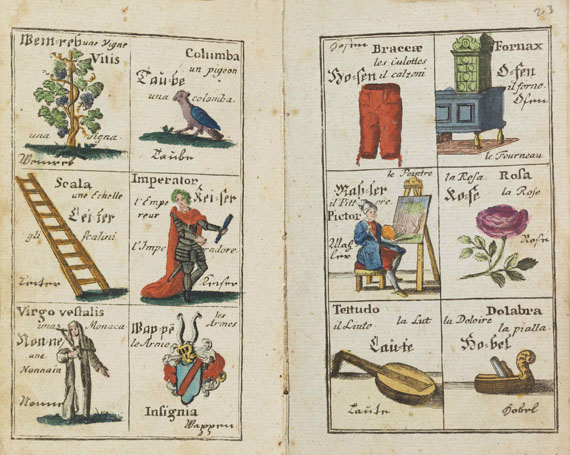 Wein-reb une Vigne
Vitis
una Vigna.
Weinreb
Columba
un pigeon
Tau-be
una colomba.
Taube
Scala
une Echelle
Lei-ter
gli Scalini
Leiter
Imperator
Kei-ser
l'Empe
reur
l'Impe radore.
Keiser
Virgo vestalis
una Monaca
Non-ne
une
Nonnain
Nonne
les
Armes
Wap-pē
le Armie
Insignia
Wappen
23
Hosen
Braccæ
les Culottes
Ho-sen il calzoni
Fornax
O-fen
il forno.
Ofen
le Fourneau
le Peintre
Mah-ler
il Pitt ore.
Pictor
Mah
ler
la Rosa.
Rosa
Ro-se
la Rose
Rose
Testudo
il Liuto
la Lut
Lau-te
Laute
Dolabra
la Doloire
la pialla.
Ho-bel
Hobel